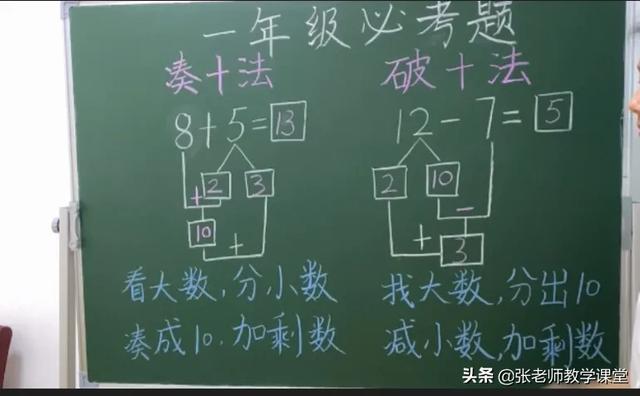 一年级必考题
凑十法
8+5=13
2 3
+
10
+
看大数,分小数
凑成10.加剩数
破十法
12-7=5
2 10
-
+
3
找大数,分出10
减小数,加剩数
头条 @张老师教学课堂